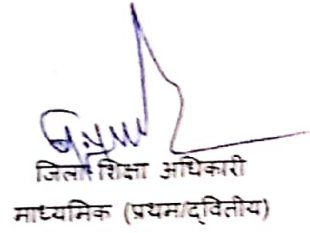 जिला शिक्षा अधिकारी
माध्यमिक (प्रथम/द्वितीय)